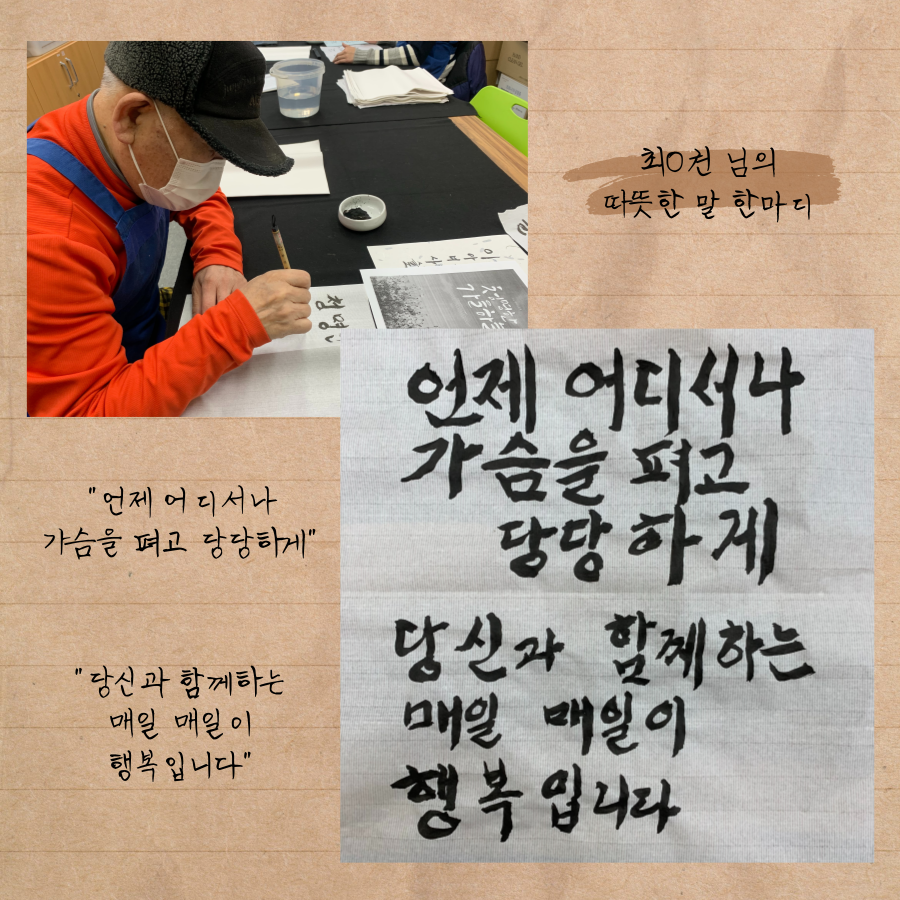 최O권 님의
따뜻한 말 한마디
"언제 어디서나
가슴을 펴고 당당하게"
"당신과 함께하는
매일 매일이
행복입니다"
언제 어디서나
가슴을 펴고
당당하게
당신과 함께하는
매일 매일이
행복입니다